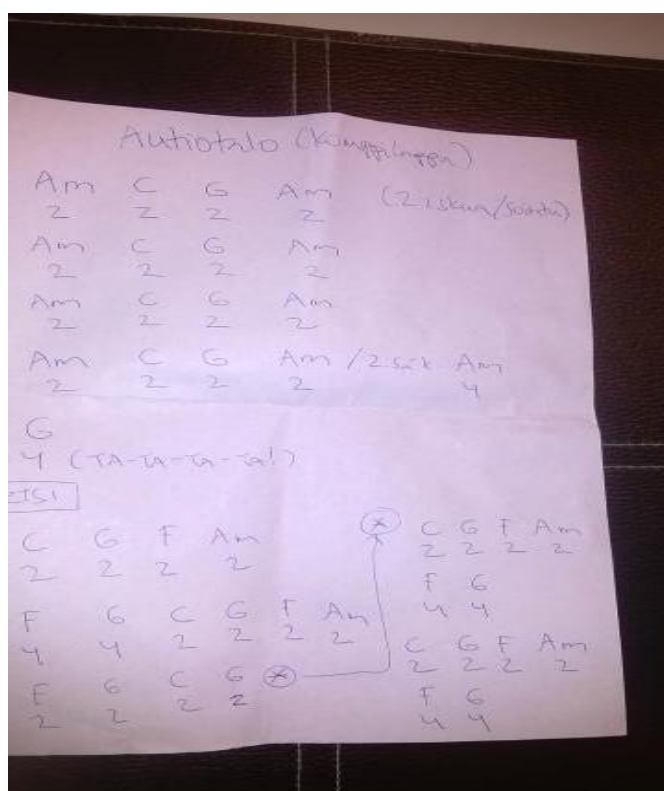 Autiotalo (
Am C G Am (2 iskua/sointu)
2 2 2 2
Am C G Am
2 2 2 2
Am C G Am
2 2 2 2
Am C G Am /2 säk Am
2 2 2 2 4
G
4 (TA-TA-TA-TA!)
C G F Am
2 2 2 2
F G C G F Am
4 4 2 2 2 2
F G C G *
2 2 2 2
* C G F Am
2 2 2 2
F G
4 4
C G F Am
2 2 2 2
F G
4 4